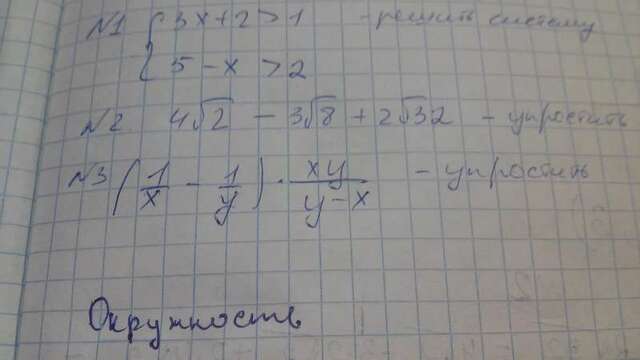 №1 { 3x + 2 > 1 - решить систему
5 - x > 2
№2 4√2 - 3√8 + 2√32 - упростить
№3 (1/x - 1/y) · xy/(y - x) - упростить
Окружность